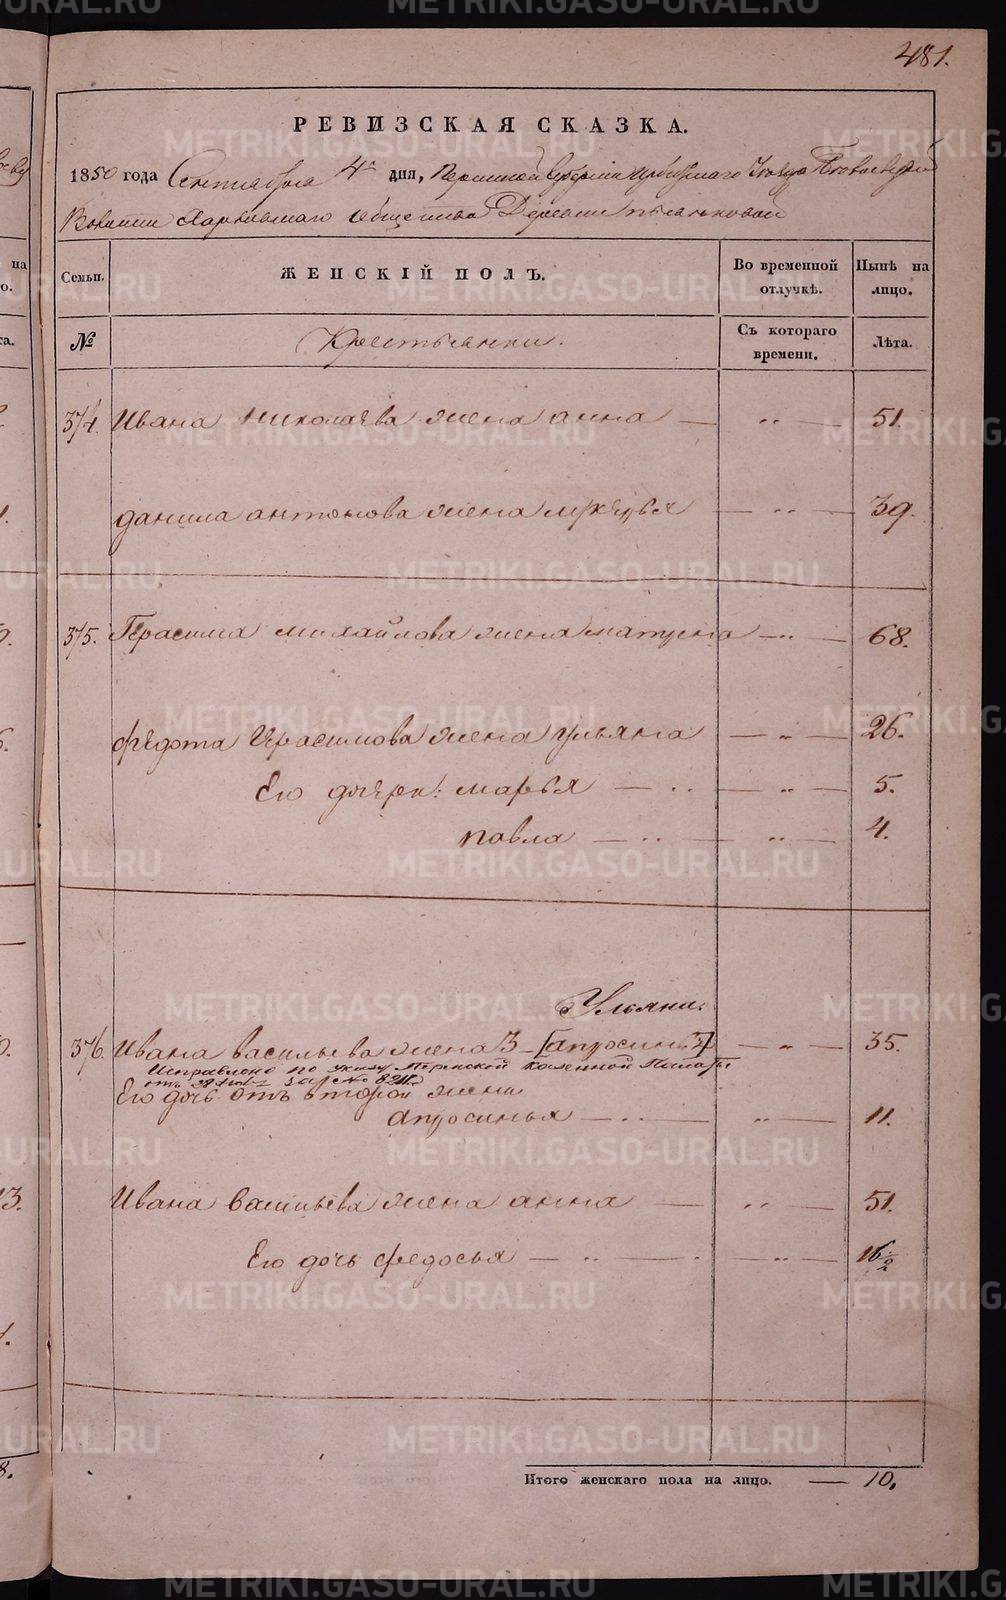 METRIKI.GASO-URAL.RU
481.
РЕВИЗСКАЯ СКАЗКА.
1850 года Сентября 4го дня, Пермской Губернии Ирбитскаго Уезда
Волости Харловскаго Общества Деревни
Семьи.
ЖЕНСКІЙ ПОЛЪ.
Во временной отлучкѣ.
Нынѣ на лицо.
№
Крестьянки.
Съ котораго времени.
Лѣта.
374. Ивана Николаева жена анна — „ — 51.
данила антонова жена — „ — 39.
375. Герасима михайлова жена матрена — „ — 68.
федота Герасимова жена ульяна — „ — 26.
Его дочери: марья — „ — „ — 5.
павла — „ — „ — 4.
Ульяна.
376. Ивана васильева жена 3 — [апросинья] — „ — 35.
Исправлено по указу Пермской Казенной Палаты
от за № 8211.
Его дочь отъ второй жены
апросинья — „ — „ — 11.
Ивана васильева жена анна — „ — 51.
Его дочь федосья — „ — „ — 16 1/2
Итого женскаго пола на лицо. — 10.